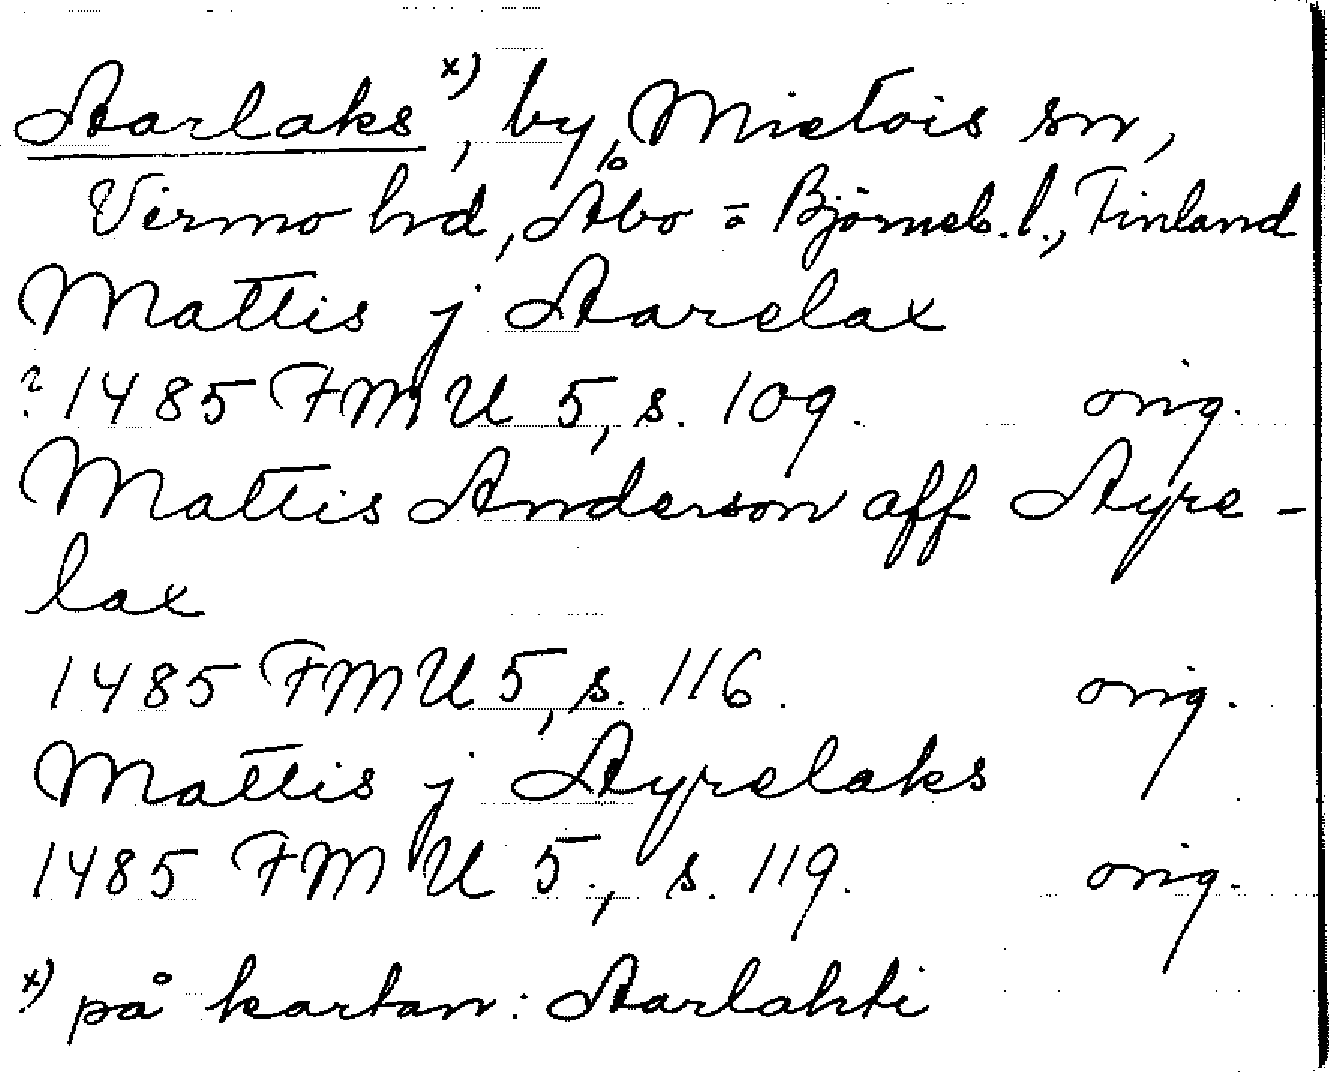 Aarlaks x), by, Mietois sn,
Virmo hd, Åbo = Björneb. l., Finland
Mattis j Aarelax
? 1485 FMU 5, s. 109. orig.
Mattis Anderson aff Ayre-
lax
1485 FMU 5, s. 116. orig.
Mattis j Ayrelaks
1485 FMU 5, s. 119. orig.
x) på kartan: Aarlahti